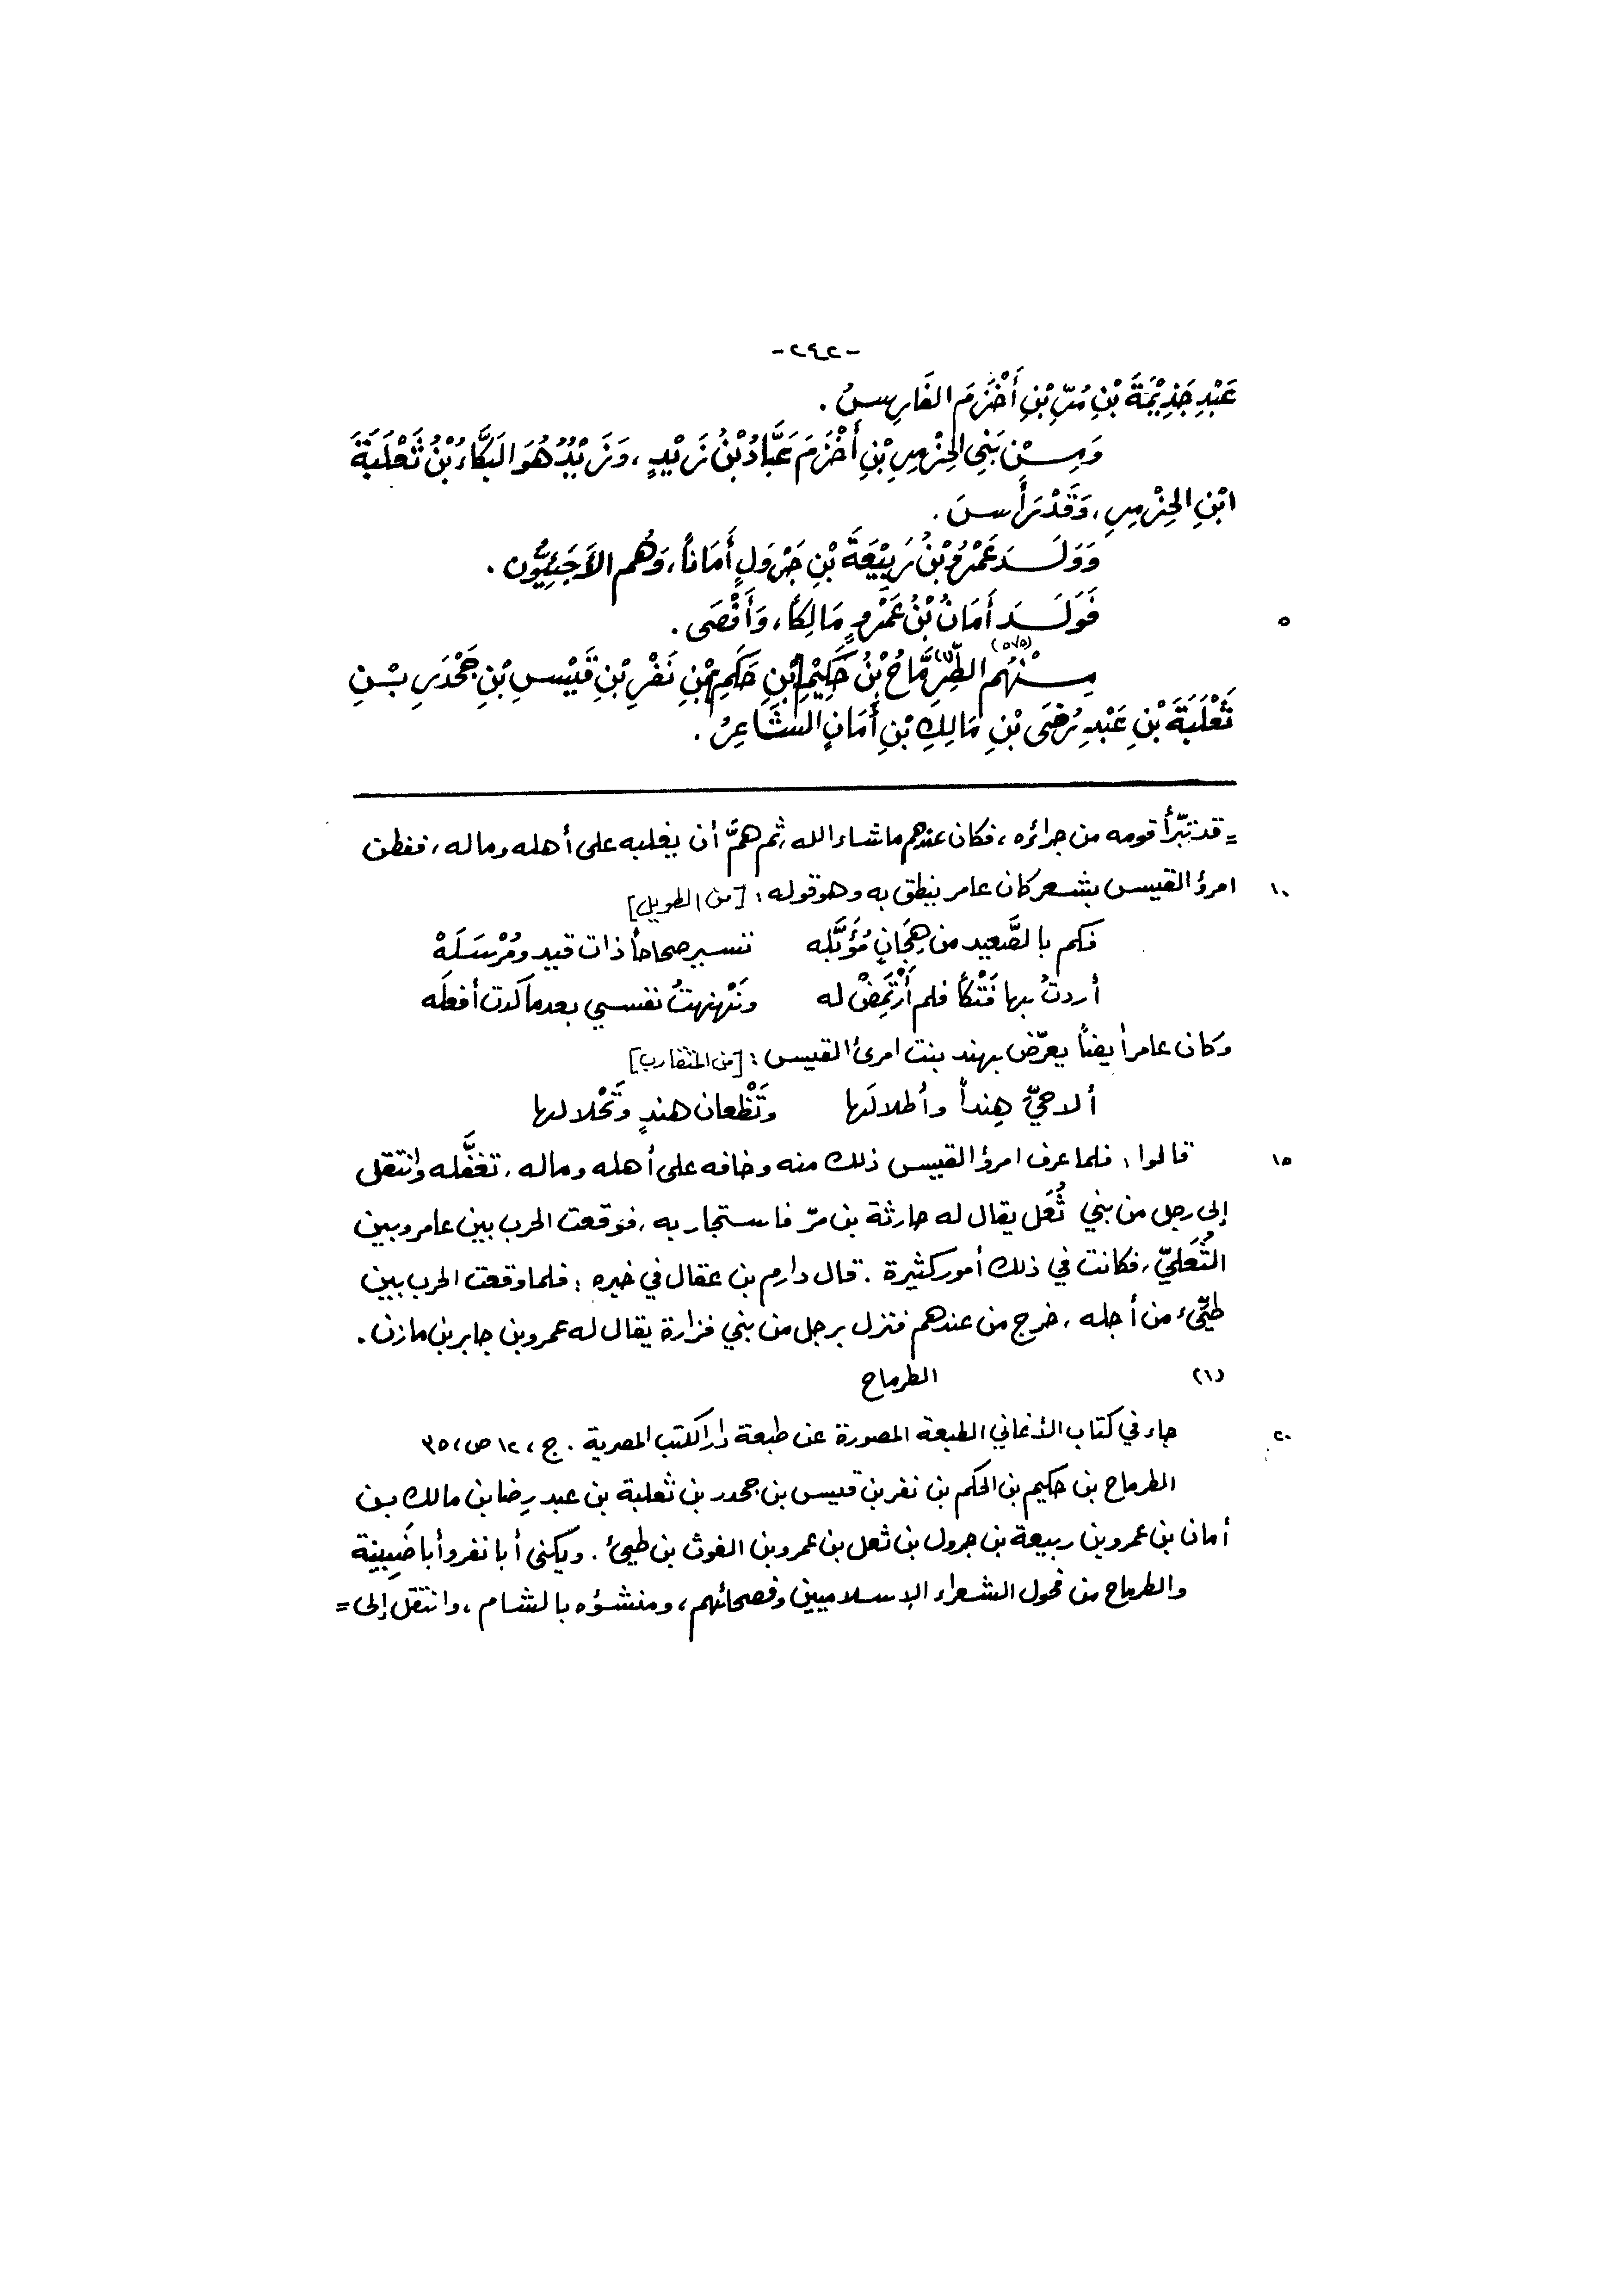 -٢٤٢-
عَبْدِ جَذِيْمَةَ بْنِ مُرِّ بْنِ أَخْزَمَ الفَارِسُ .
وَمِـنْ بَنِي الحِزْمِرِ بْنِ أَخْزَمَ عَبَّادُ بْنُ زَيْدٍ ، وَزَيْدُ هُوَ البَكَّاءُ بْنُ ثَعْلَبَةَ
ابْنِ الحِزْمِرِ ، وَقَدْ رَأَسَ .
وَوَلَـدَ عَمْرُو بْنُ رَبِيْعَةَ بْنِ جَرْوَلٍ أَمَاناً ، وَهُم الأَجَئِيُّون .
فَوَلَـدَ أَمَانُ بْنُ عَمْرٍو مَالِكاً ، وَأَقْصَى .
٥
مِـنْهُم الطِّرِمَّاحُ (١) بْنُ حَكِيْمِ بْنِ حَكَمِ بْنِ نَفْرِ بْنِ قَيْسِ بْنِ جَحْدَرِ بْـنِ
ثَعْلَبَةَ بْنِ عَبْدِ رُضَى بْنِ مَالِكِ بْنِ أَمَانٍ الشَّاعِرُ .
= قد تبّرأ قومه من جرائره ، فكان عندهم ماشاء الله ، ثم همَّ أن يغلبه على أهله وماله ، ففطن
امرؤ القيس بشعر كان عامر ينطق به وهو قوله : [من الطويل]
١٠
فكم بالصَّعيد من هِجَانٍ مُؤَبَّله تسير صحاحاً ذات قيد ومُرْسَلَهْ
أردتُ بها فَتْكاً فلم أَرْتَمِضْ له ونَهْنهتُ نفسي بعدما كدت أفعلَه
وكان عامر أيضاً يعرّض بهند بنت امرئ القيس : [من المتقارب]
ألا حيِّ هِنداً وأطلالَها وتَظْعان هندٍ وتَحْلالها
قالوا : فلما عرف امرؤ القيس ذلك منه وخافه على أهله وماله ، تغفَّله وانتقل
١٥
إلى رجل من بني ثُعَل يقال له حارثة بن مرّ فاستجار به ، فوقعت الحرب بين عامر وبين
الثُّعَليّ ، فكانت في ذلك أمور كثيرة . قال دارم بن عقال في خبره : فلما وقعت الحرب بين
طيّئ من أجله ، خرج من عندهم فنزل برجل من بني فزارة يقال له عمرو بن جابر بن مازن .
(١) الطرماح
جاء في كتاب الأغاني الطبعة المصورة عن طبعة دار الكتب المصرية . ج ، ١٢ ص ، ٣٥
٢٠
الطرماح بن حكيم بن الحكم بن نفر بن قيس بن جحدر بن ثعلبة بن عبد رِضا بن مالك بـن
أمان بن عمرو بن ربيعة بن جرول بن ثعل بن عمرو بن الغوث بن طيئ . ويكنى أبا نفر وأبا ضَبِينة
والطرماح من فحول الشعراء الإسلاميين وفصحائهم ، ومنشؤه بالشام ، وانتقل إلى =